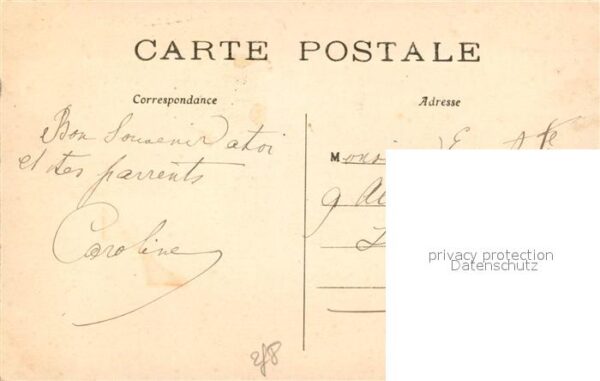 CARTE POSTALE
Correspondance
Adresse
Bon Souvenir a toi
et tes parrents
Caroline
M
9
privacy protection
Datenschutz